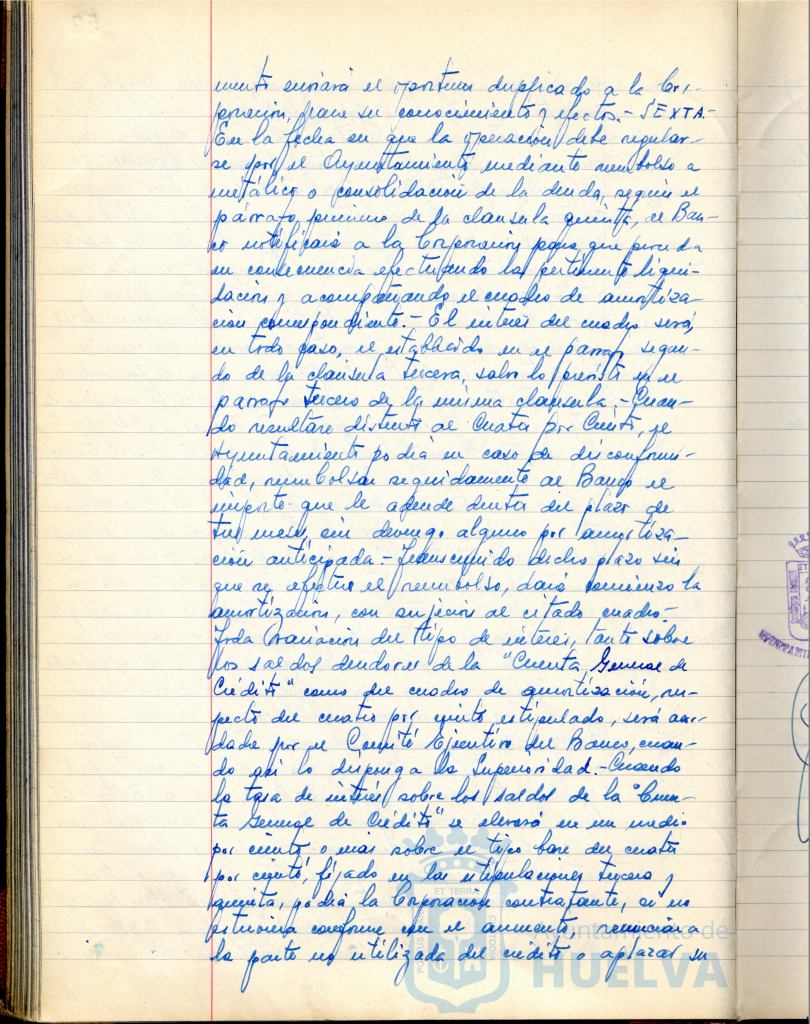 mento enviará el oportuno duplicado a la Cor-
poración, para su conocimiento y efectos.- SEXTA.-
En la fecha en que la operación debe regular-
se por el Ayuntamiento mediante reembolso a
metálico o consolidación de la deuda, según el
párrafo primero de la clausula quinta, el Ban-
co notificará a la Corporación para que proceda
en consecuencia efectuando la pertinente liqui-
dación y acompañando el cuadro de amortiza-
ción correspondiente.- El interés del cuadro será,
en todo caso, el establecido en el párrafo segun-
do de la clausula tercera, salvo lo previsto en el
párrafo tercero de la misma clausula.- Cuan-
do resultare distinto al Cuatro por Ciento, el
Ayuntamiento podrá en caso de disconformi-
dad, reembolsar seguidamente al Banco el
importe que le adeude dentro del plazo de
tres meses, sin devengo alguno por amortiza-
ción anticipada.- Transcurrido dicho plazo sin
que se efectue el reembolso, dará comienzo la
amortización, con sujeción al citado cuadro.-
Toda variación del tipo de interés, tanto sobre
los saldos deudores de la "Cuenta General de
Crédito" como del cuadro de amortización, res-
pecto del cuatro por ciento estipulado, será acor-
dada por el Comité Ejecutivo del Banco, cuan-
do así lo disponga la Superioridad.- Cuando
la tasa de interés sobre los saldos de la "Cuen-
ta General de Crédito" se elevará en un medio
por ciento o más sobre el tipo base del cuatro
por ciento, fijado en las estipulaciones tercera y
quinta, podrá la Corporación contratante, si no
estuviera conforme con el aumento, renunciar a
la parte no utilizada del crédito o aplazar su
Ayuntamiento de
HUELVA